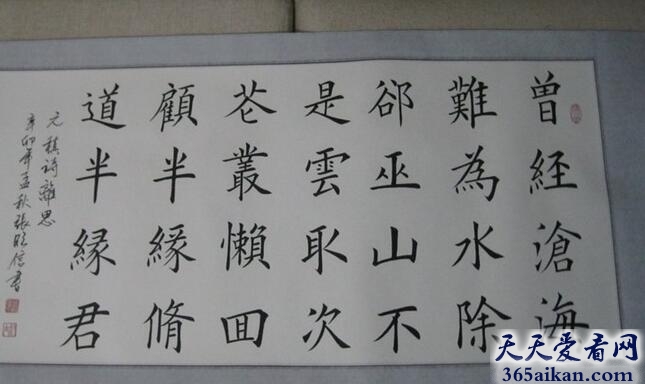 曾経滄海
難為水除
郤巫山不
是雲取次
花叢懶囬
顧半緣脩
道半緣君
元稹詩離思
辛卯年孟秋張信書
天天爱看网
365aikan.com